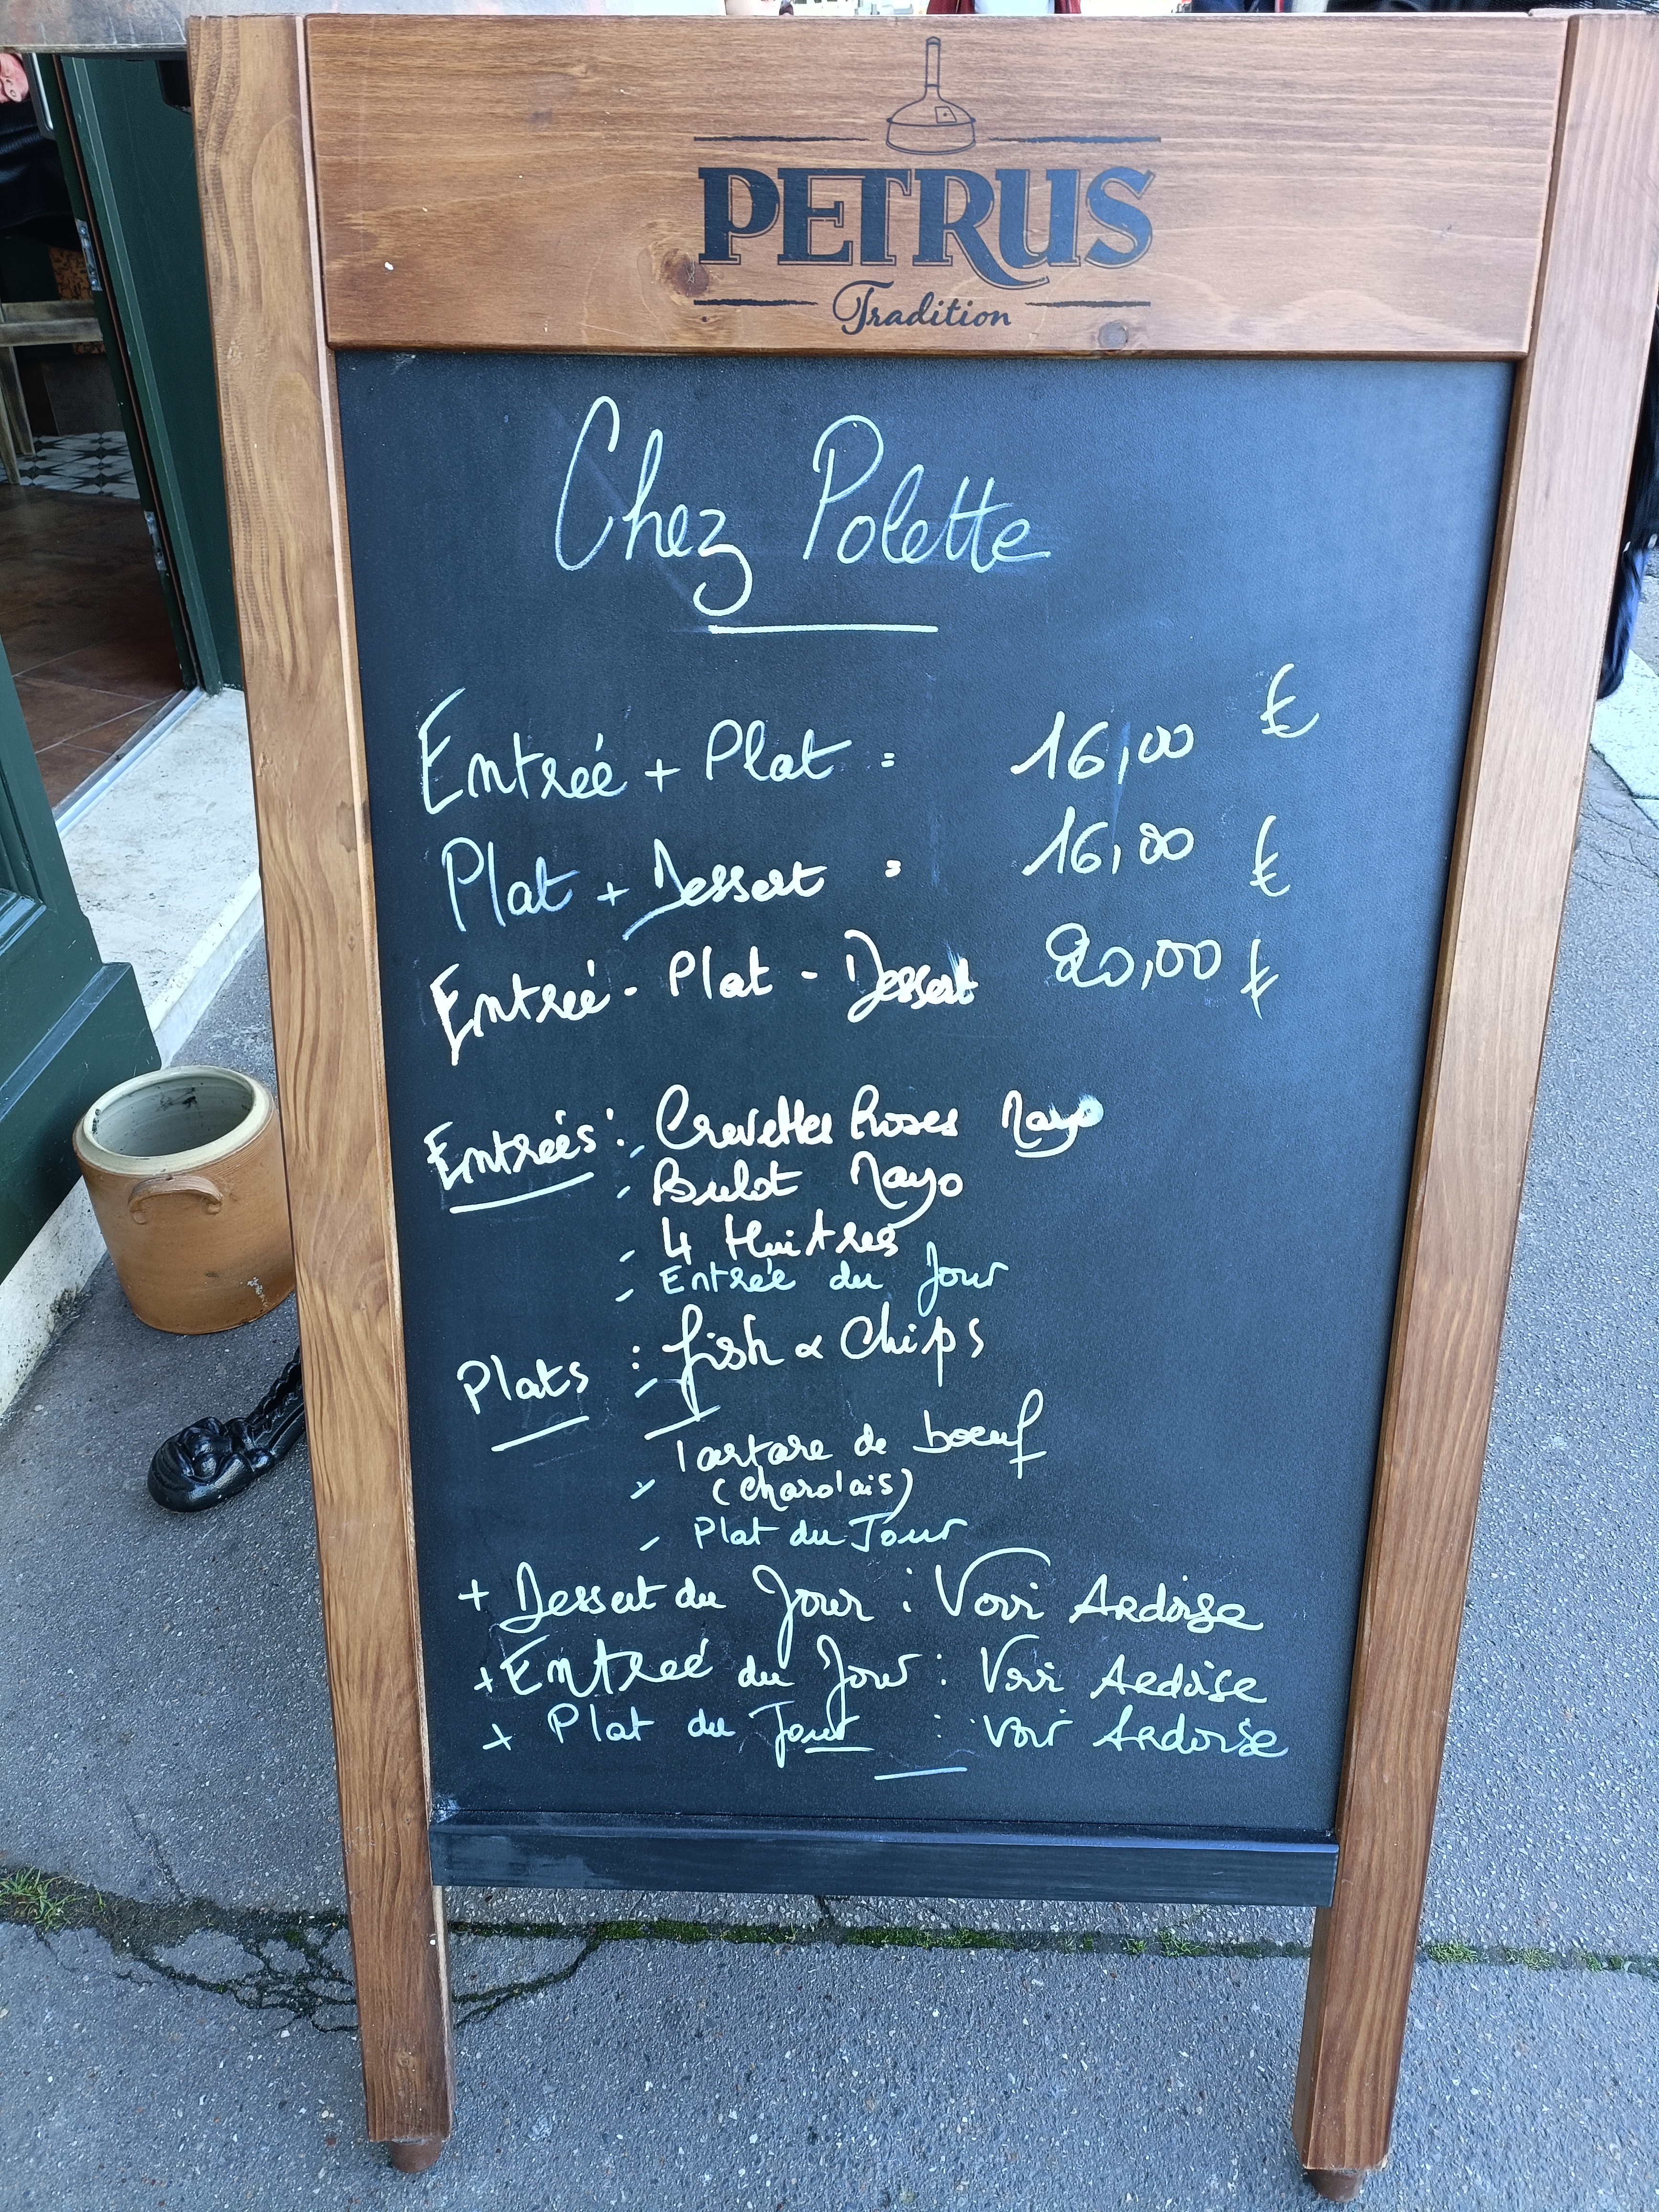 PETRUS
Tradition
Chez Polette
Entrée + Plat = 16,00 €
Plat + Dessert = 16,00 €
Entrée - Plat - Dessert 20,00 €
Entrées : - Crevettes Roses Mayo
- Bulot Mayo
- 4 Huitres
- Entrée du Jour
Plats : - fish & Chips
- Tartare de boeuf
(charolais)
- Plat du Jour
+ Dessert du Jour : Voir Ardoise
+ Entrée du Jour : Voir Ardoise
+ Plat du Jour : Voir Ardoise